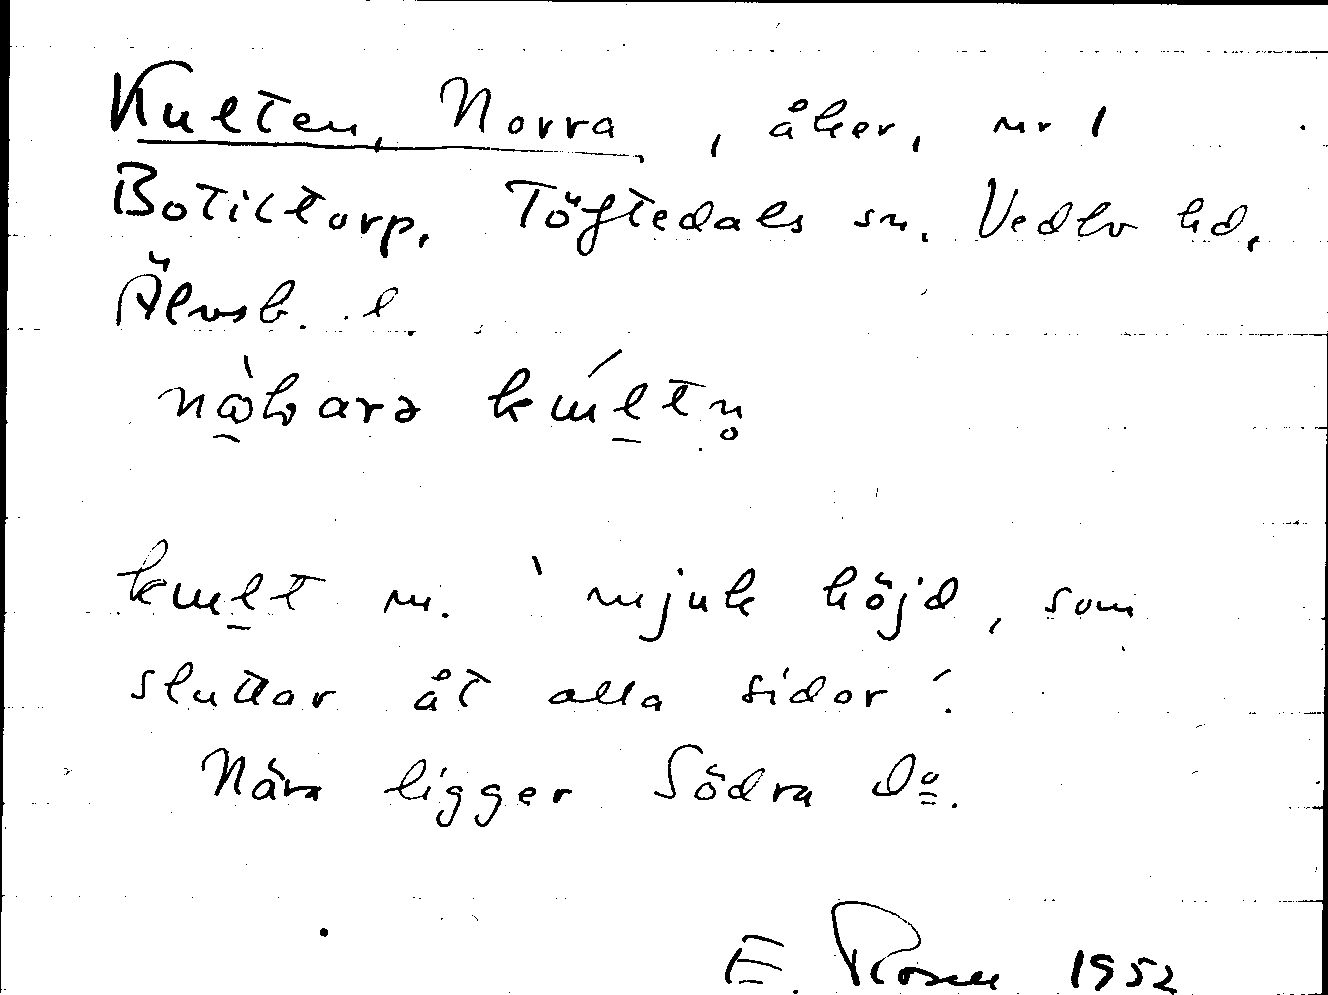 Kulten, Norra, åker, nr 1
Botiltorp, Töftedals sn. Vedbo hd,
Älvsb. l.
kɯltn̥
kɯlt m. 'mjuk höjd, som
sluttar åt alla sidor'.
Nära ligger Södra Do.
E. Rosell 1952